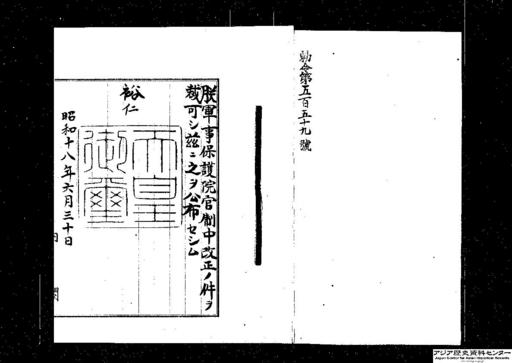 勅令第五百五十九號
朕軍事保護院官制中改正ノ件ヲ
裁可シ茲ニ之ヲ公布セシム
裕仁
天皇御璽
昭和十八年六月三十日
アジア歴史資料センター
Japan Center for Asian Historical Records